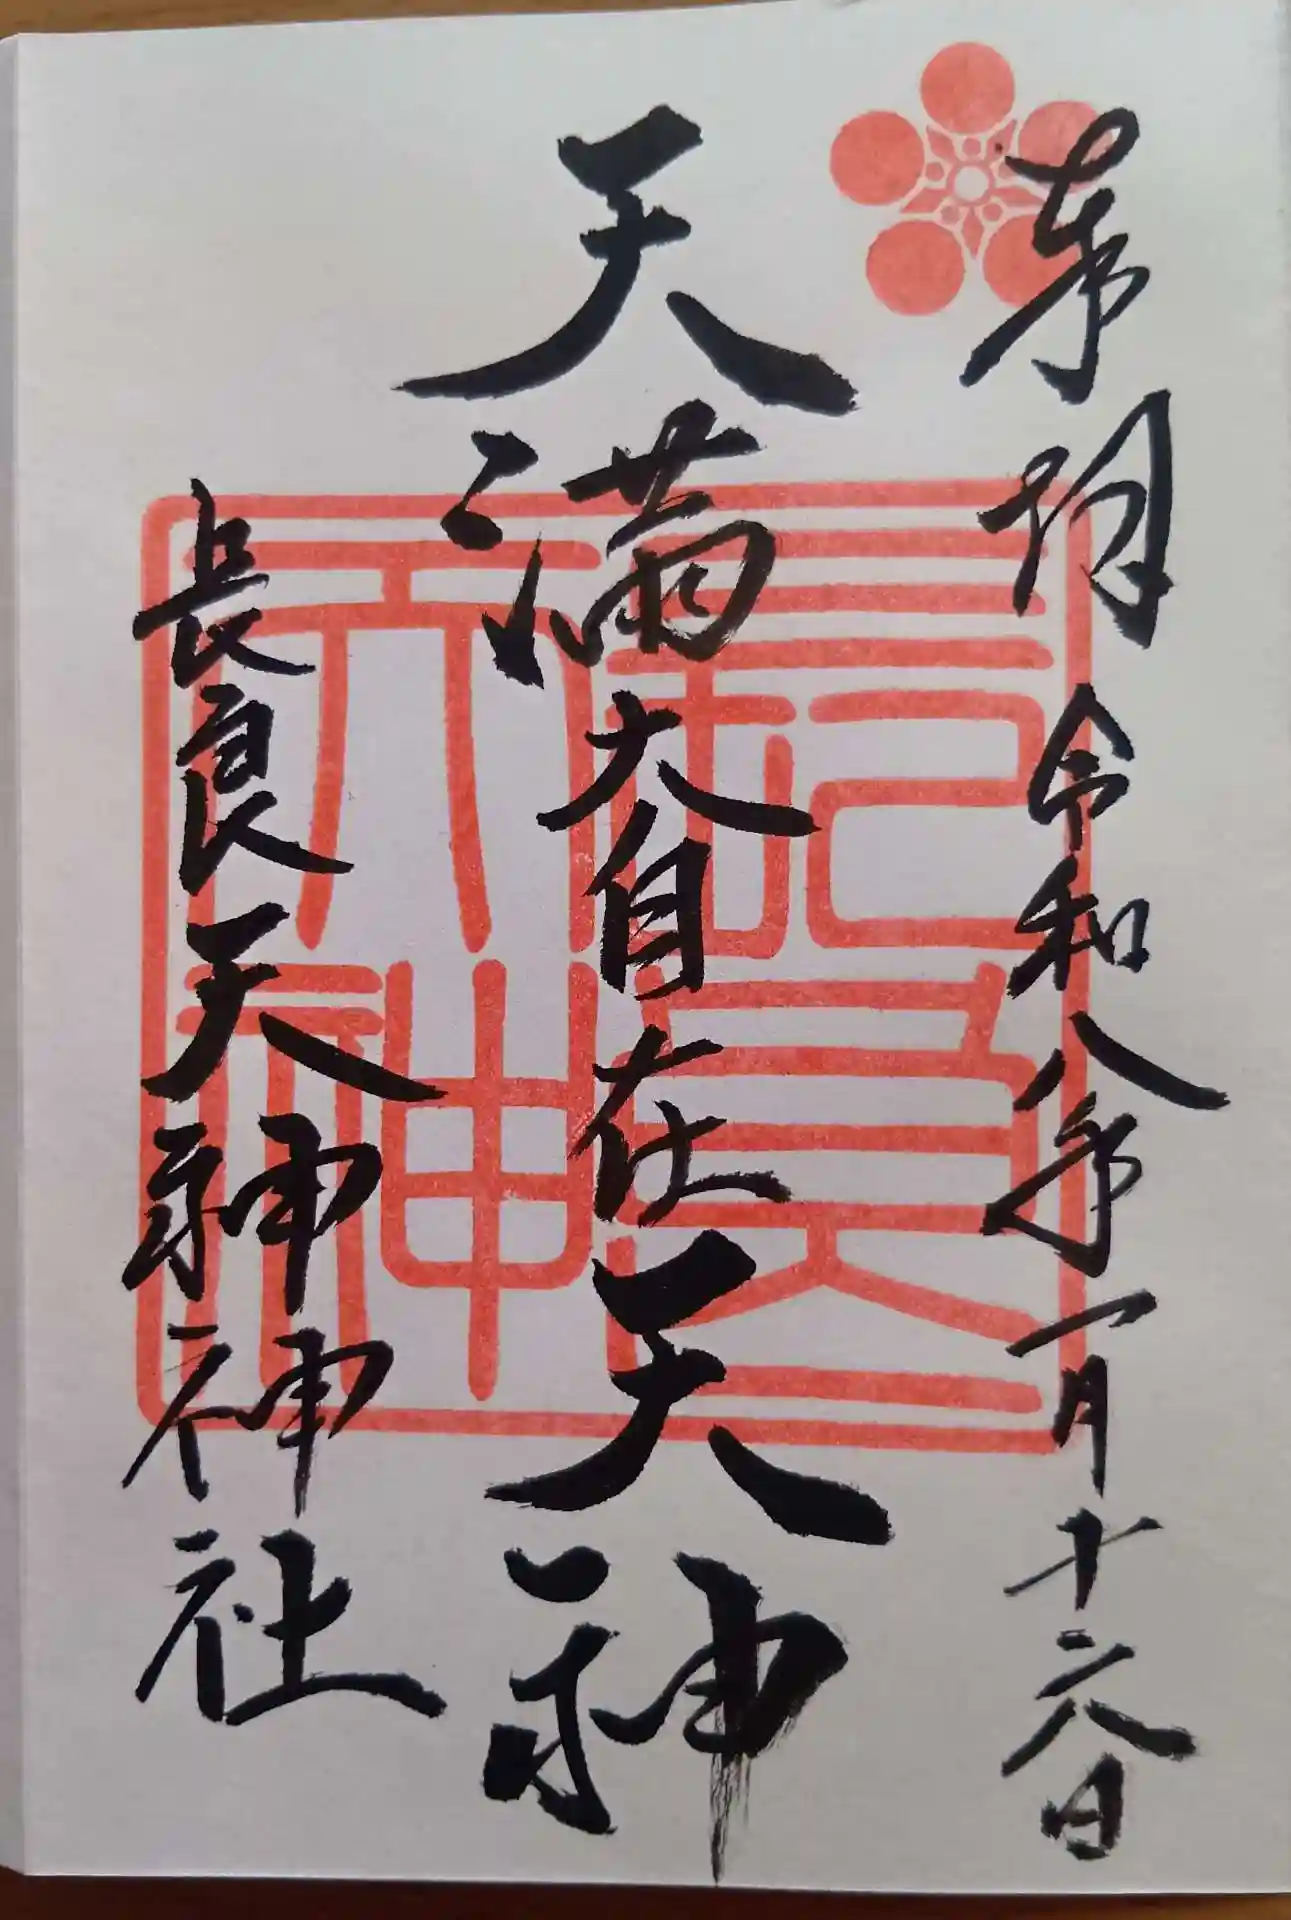 奉拝 令和八年一月十六日
天満大自在天神
長良天神神社
長良
天神